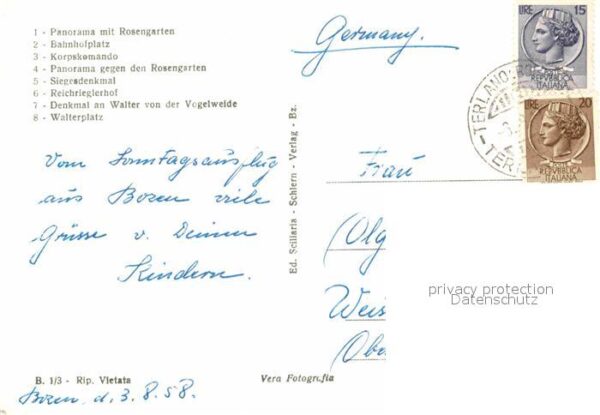 1 - Panorama mit Rosengarten
2 - Bahnhofplatz
3 - Korpskomando
4 - Panorama gegen den Rosengarten
5 - Siegesdenkmal
6 - Reichrieglerhof
7 - Denkmal an Walter von der Vogelweide
8 - Walterplatz
Vom Sonntagsausflug
aus Bozen viele
Grüsse v. Deinen
Kindern.
B. 1/3 - Rip. Vietata
Bozen, d. 3. 8. 58.
Ed. Sciliaria - Schlern - Verlag - Bz.
Vera Fotografia
Germany.
LIRE 15
REPVBBLICA
ITALIANA
LIRE 20
REPVBBLICA
ITALIANA
TERLANO
Frau
Olg
Weis
Obe
privacy protection
Datenschutz